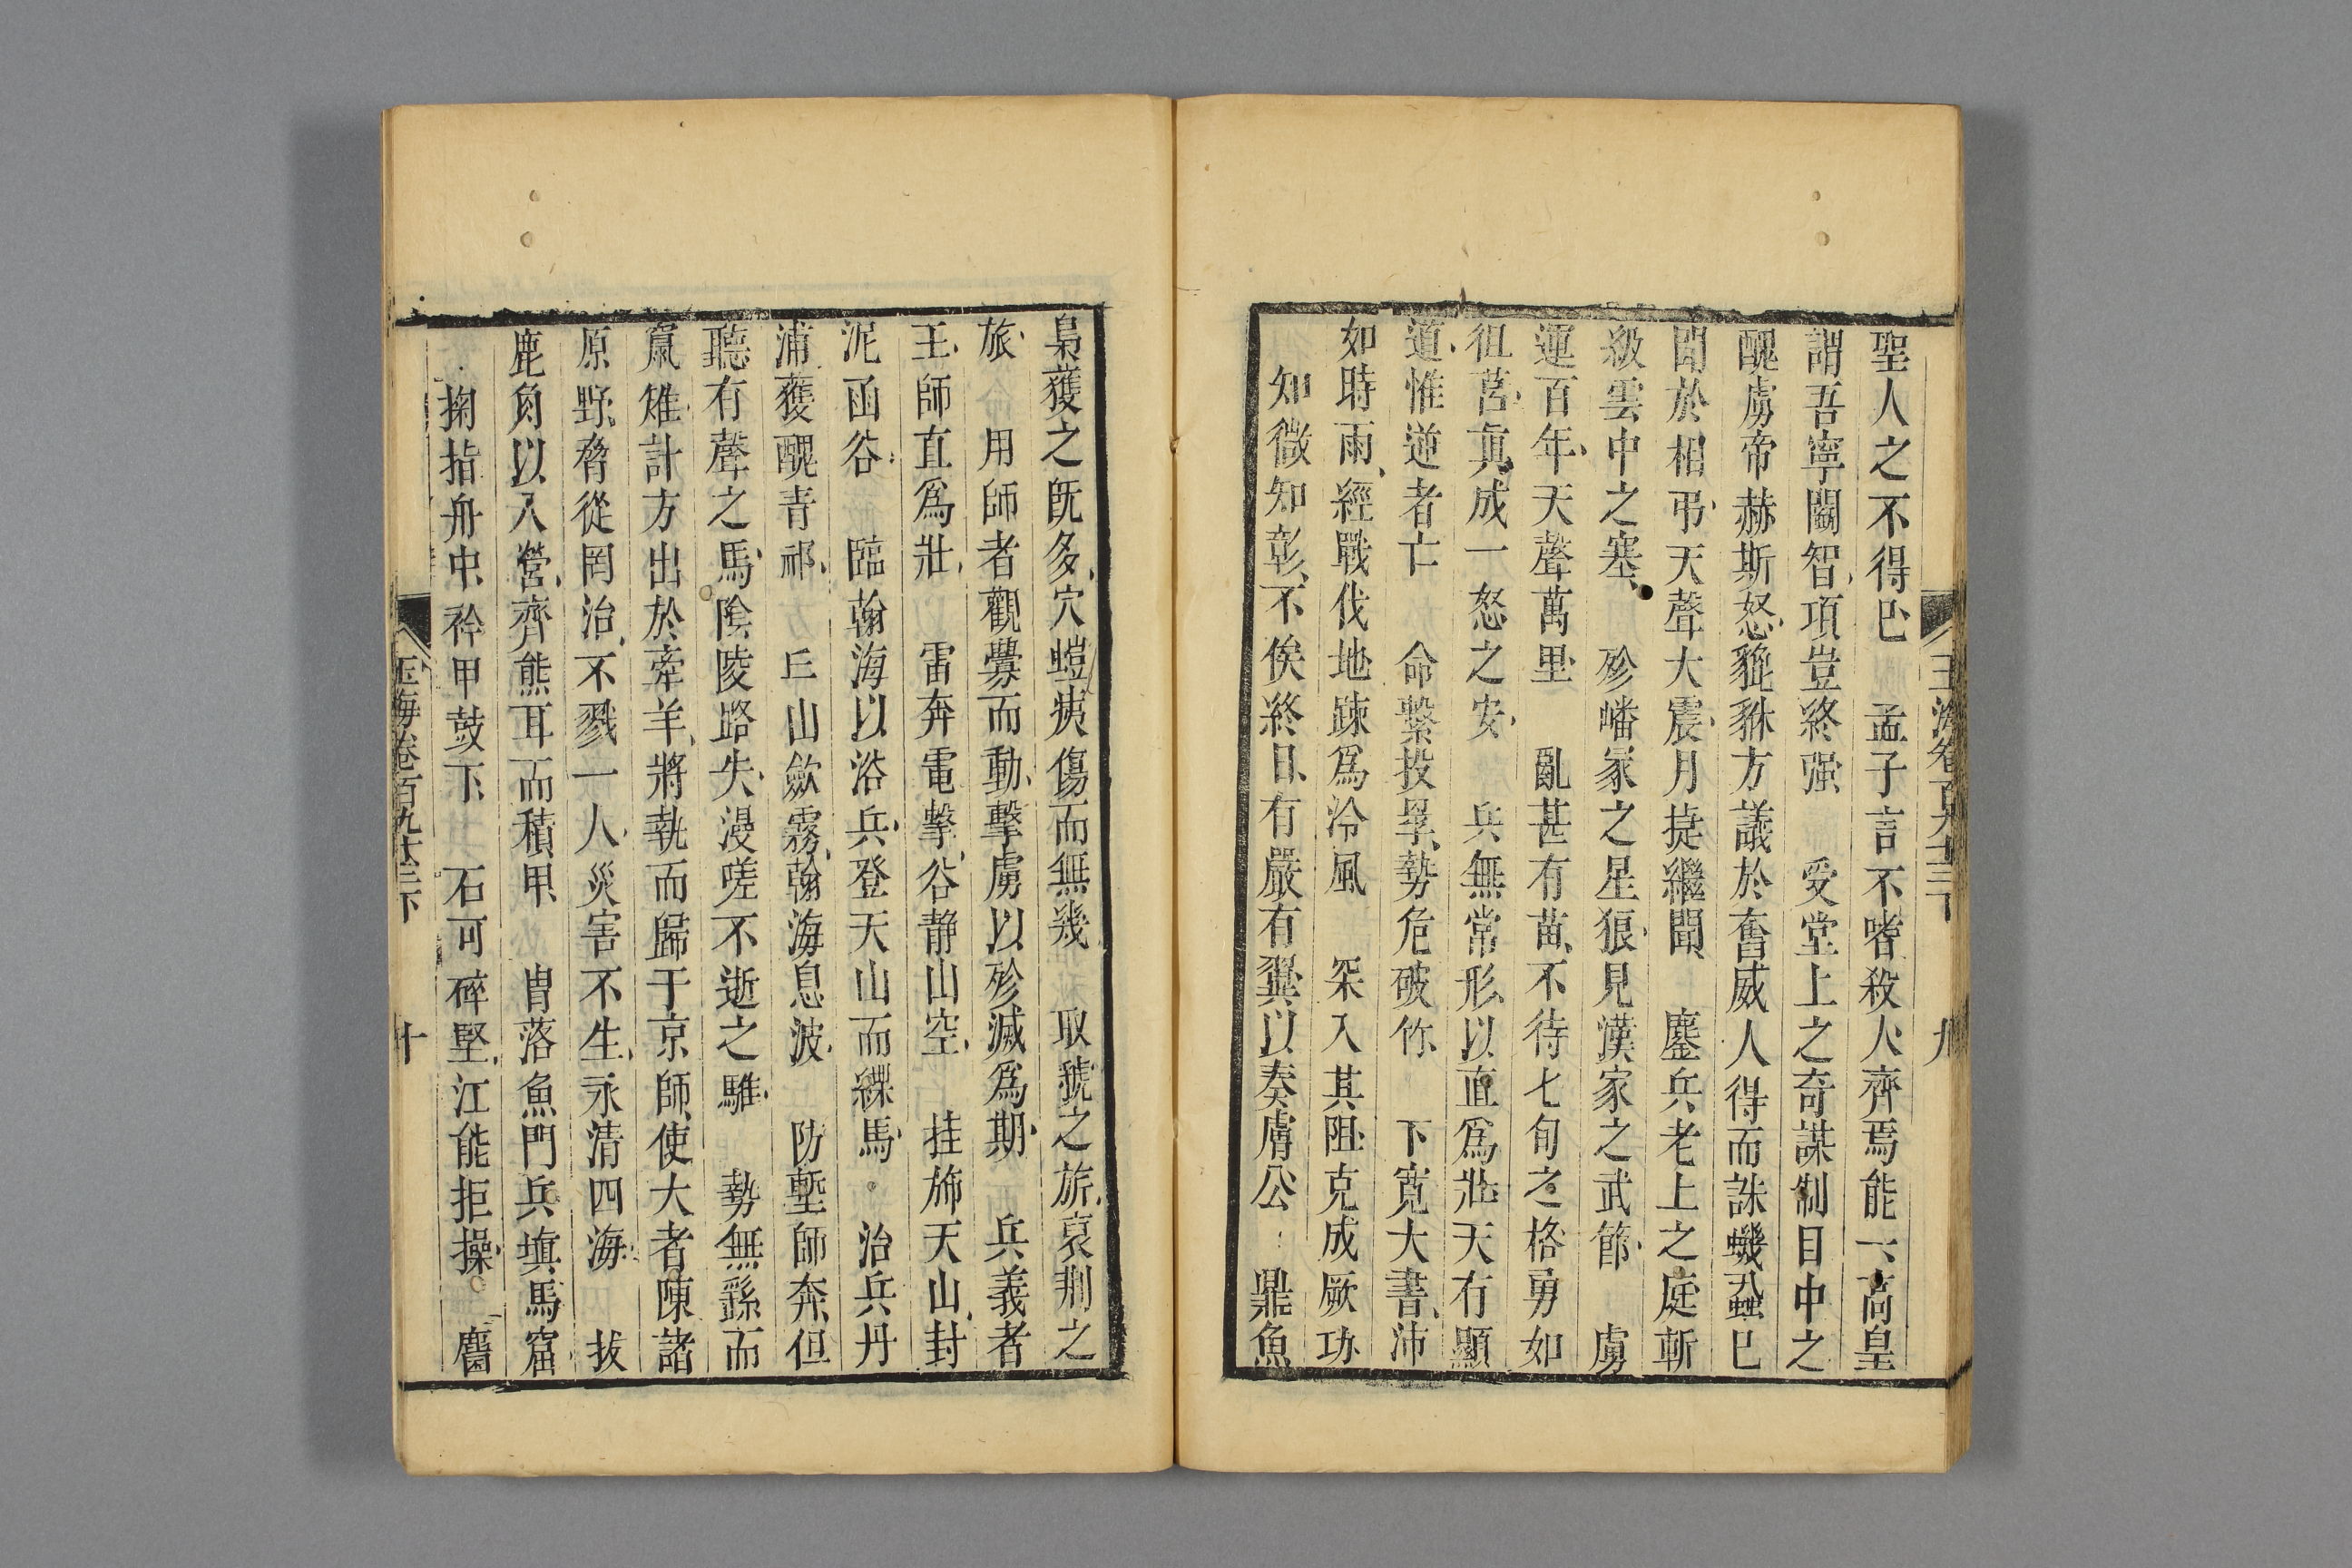 玉海卷百九十三下 九
聖人之不得已 孟子言不嗜殺人齊焉能一高皇
謂吾寧鬬智項豈終强 受堂上之奇謀制目中之
醜虜帝赫斯怒貔貅方議於奮威人得而誅蟣蝨已
聞於相弔天聲大震月捷繼聞 鏖兵老上之庭斬
級雲中之塞 殄嶓冢之星狼見漢家之武節 虜
運百年天聲萬里 亂甚有苗不待七旬之格勇如
徂莒眞成一怒之安 兵無常形以直爲壯天有顯
道惟逆者亡 命繫投罦勢危破竹 下寬大書沛
如時雨經戰伐地踈爲冷風 罙入其阻克成厥功
知微知彰不俟終日有嚴有翼以奏膚公 鼎魚
梟獲之旣多穴螘痍傷而無幾 取虢之旅裒荆之
旅 用師者觀釁而動擊虜以殄滅爲期 兵義者
王師直爲壯 雷奔電擊谷静山空 挂斾天山封
泥函谷 臨翰海以浴兵登天山而緤馬 治兵丹
浦獲醜青祁 丘山歛霧翰海息波 防塹師奔但
聽有聲之馬陰陵路失漫嗟不逝之騅 勢無繇而
鼠雉計方出於牽羊將執而歸于京師使大者陳諸
原野脅從罔治不戮一人災害不生永清四海 拔
鹿角以入營齊熊耳而積甲 胄落魚門兵塡馬窟
掬指舟中衿甲鼓下 石可碎堅江能拒操 齧
玉海卷百九十三下 十